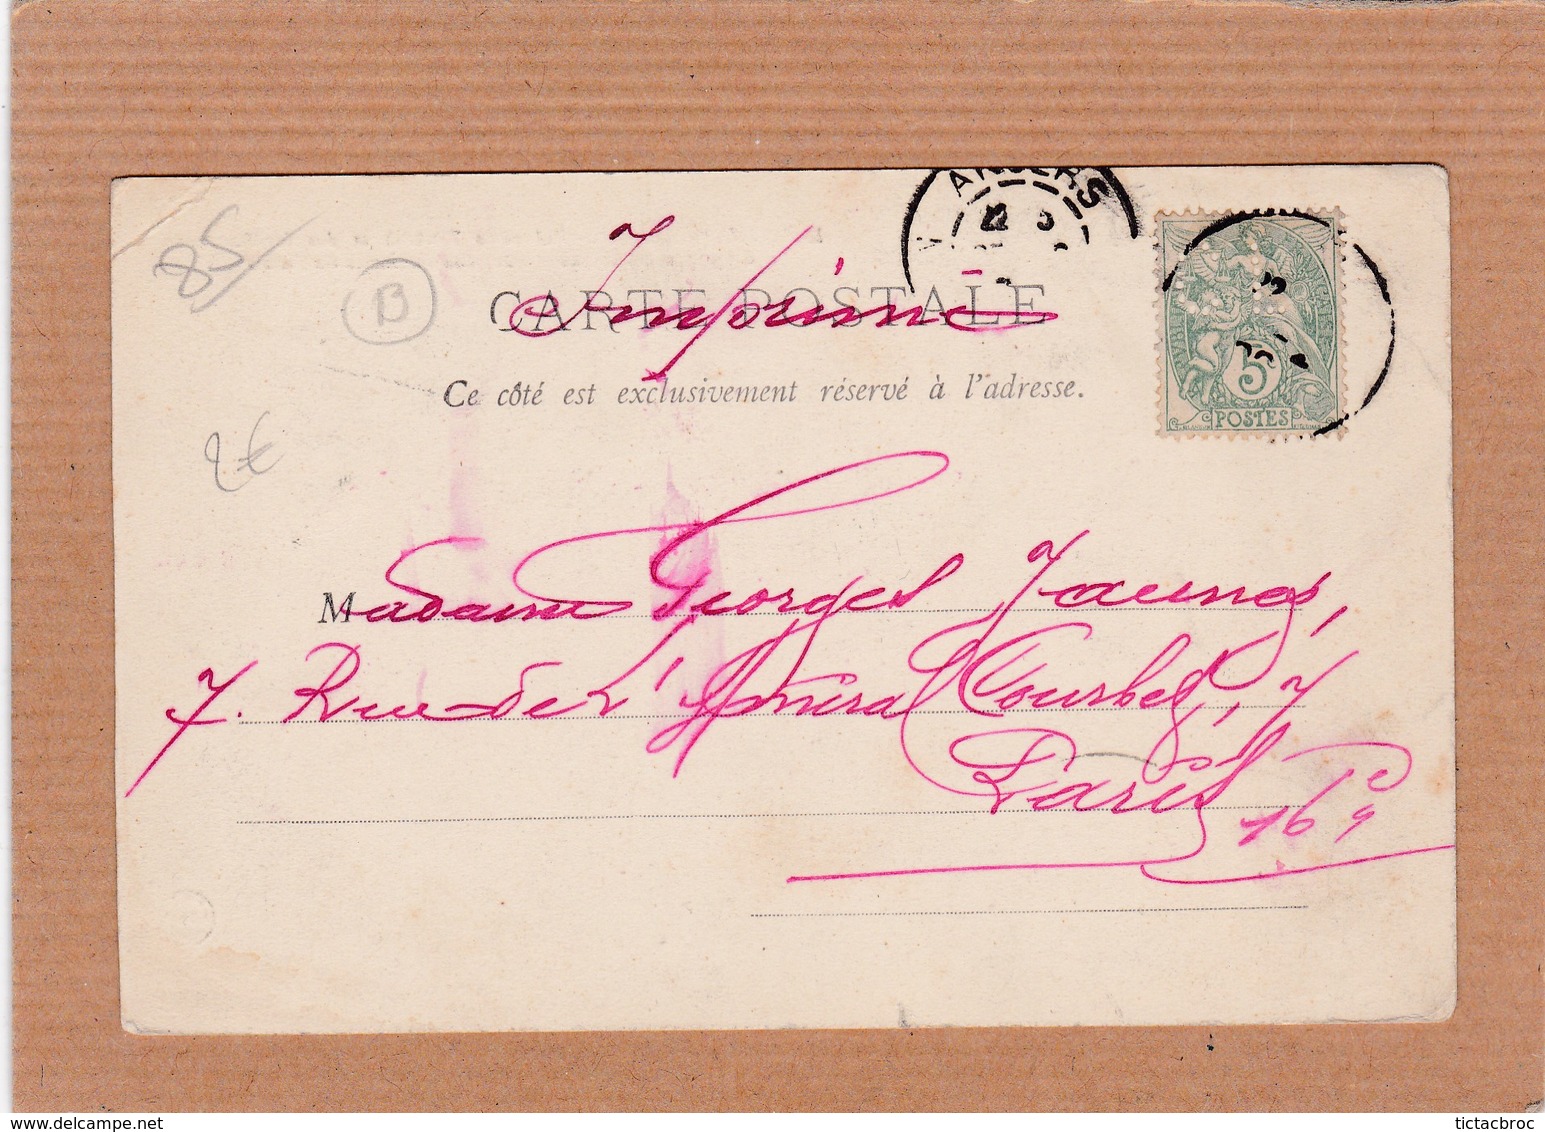 85
B
2€
ANGERS
Imprimé
CARTE POSTALE
Ce côté est exclusivement réservé à l'adresse.
5
POSTES
Madame Georges Jaunez,
7. Rue de l'Amiral Courbet, 7
Paris
16
tictacbroc